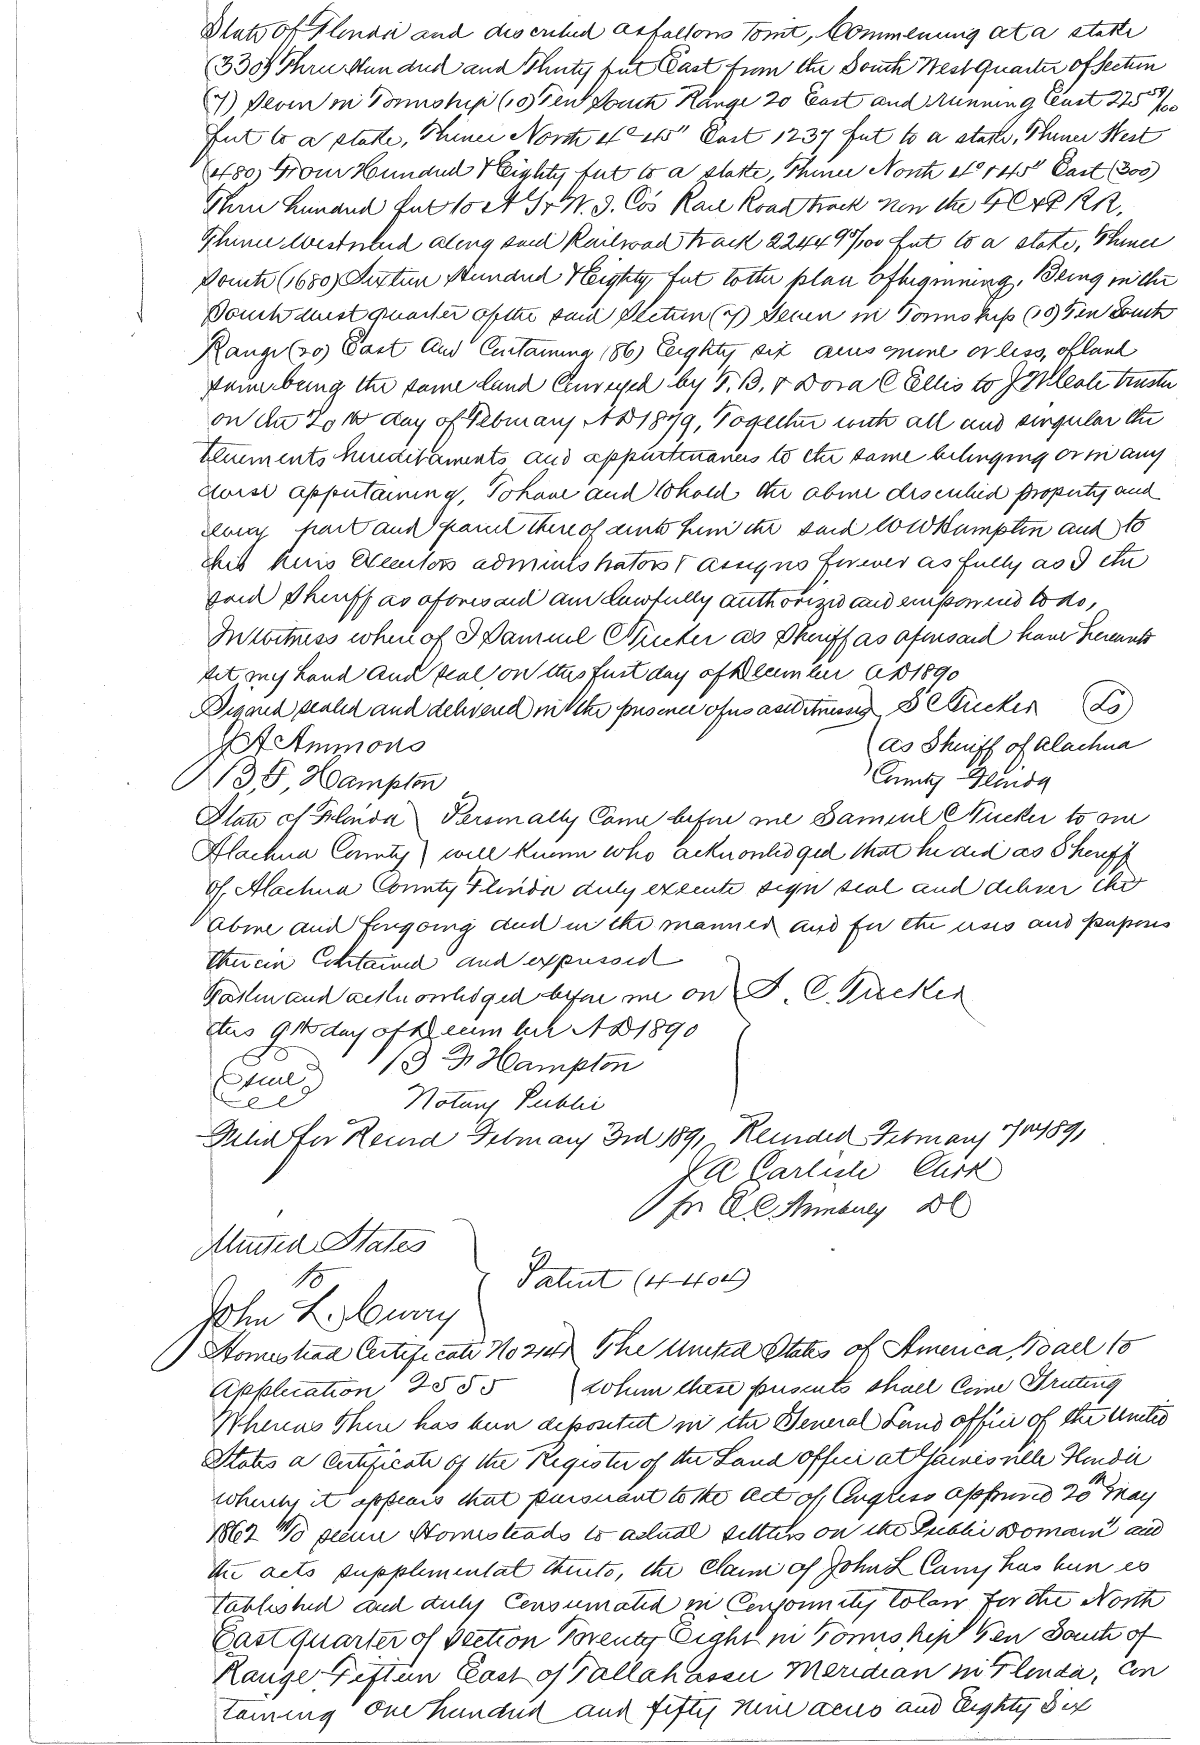 State of Florida and described as follows Towit, Commencing at a stake
(330) Three Hundred and Thirty feet East from the South West Quarter of Section
(7) Seven in Township (10) Ten South Range 20 East and running East 225 58/100
feet to a stake, Thence North 4° 45" East 1237 feet to a stake, Thence West
(480) Four Hundred & Eighty feet to a stake, Thence North 4° 45" East (300)
Three hundred feet to A Gr W. I. Co's Rail Road track now the F C & P R R,
Thence Westward along said Railroad track 2244 95/100 feet to a stake, Thence
South (1680) Sixteen Hundred & Eighty feet to the place of beginning, Being in the
South west quarter of the said Section (7) Seven in Township (10) Ten South
Range (20) East And Containing (86) Eighty six acres more or less, of land
same being the same land Conveyed by T. B. & Dora C Ellis to J N Cole trustee
on the 20th day of February AD 1879, Together with all and singular the
tenements hereditaments and appurtenances to the same belonging or in any
wise appertaining, To have and to hold the above described property and
every part and parcel thereof unto him the said W W Hampton and to
his heirs Executors administrators & assigns forever as fully as I the
said Sheriff as aforesaid am lawfully authorized and empowered to do,
In Witness whereof I Samuel C Tucker as Sheriff as aforesaid have hereunto
set my hand and seal on this first day of December AD 1890
Signed, sealed and delivered in the presence of us as witnesses S C Tucker (LS)
J A Ammons as Sheriff of Alachua
B, F, Hampton County Florida
State of Florida Personally Came before me Samuel C Tucker to me
Alachua County well known who acknowledged that he did as Sheriff
of Alachua County Florida duly execute sign seal and deliver the
above and foregoing deed in the manner and for the uses and purposes
therein Contained and expressed
Taken and acknowledged before me on S. C. Tucker
this 9th day of December AD 1890
B F Hampton
Seal
Notary Public
Filed for Record February 3rd 1891 Recorded February 7th 1891
J A Carlisle Clerk
pr DC
United States
to
Patent (4-404)
John L. Curry
Homestead Certificate No The United States of America, To all to
Application 2555 whom these presents shall Come Greeting
Whereas There has been deposited in the General Land office of the United
States a Certificate of the Register of the Land office at Gainesville Florida
whereby it appears that pursuant to the act of Congress approved 20th May
1862 "To secure Homesteads to actual settlers on the Public Domain" and
the acts supplemental thereto, the Claim of John L Curry has been es
tablished and duly Consumated in Conformity to law for the North
East quarter of Section Twenty Eight in Township Ten South of
Range Fifteen East of Tallahassee Meridian in Florida, Con
taining one hundred and fifty nine acres and Eighty Six